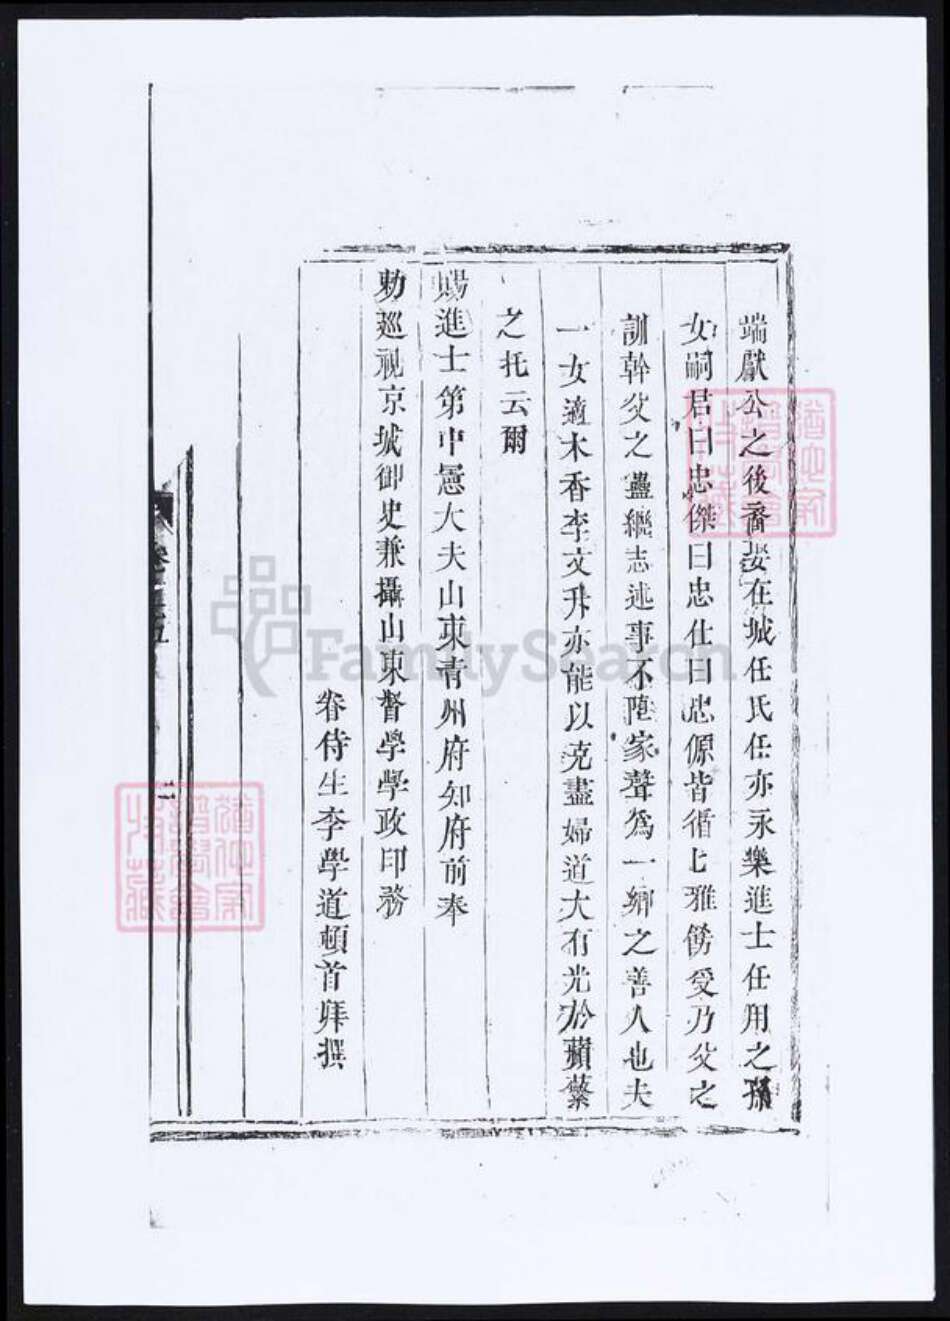 端獻公之後裔娶在城任氏任亦永樂進士任用之孫
女嗣君曰忠傑曰忠仕曰忠源皆循上雅飭受乃父之
訓幹父之蠱繼志述事不墮家聲為一鄉之善人也夫
一女適木香李文升亦能以克盡婦道大有光於蘋蘩
之托云爾
賜進士第中憲大夫山東青州府知府前奉
勅巡視京城御史兼攝山東督學學政印務
眷侍生李學道頓首拜撰
卷五
二
FamilySearch